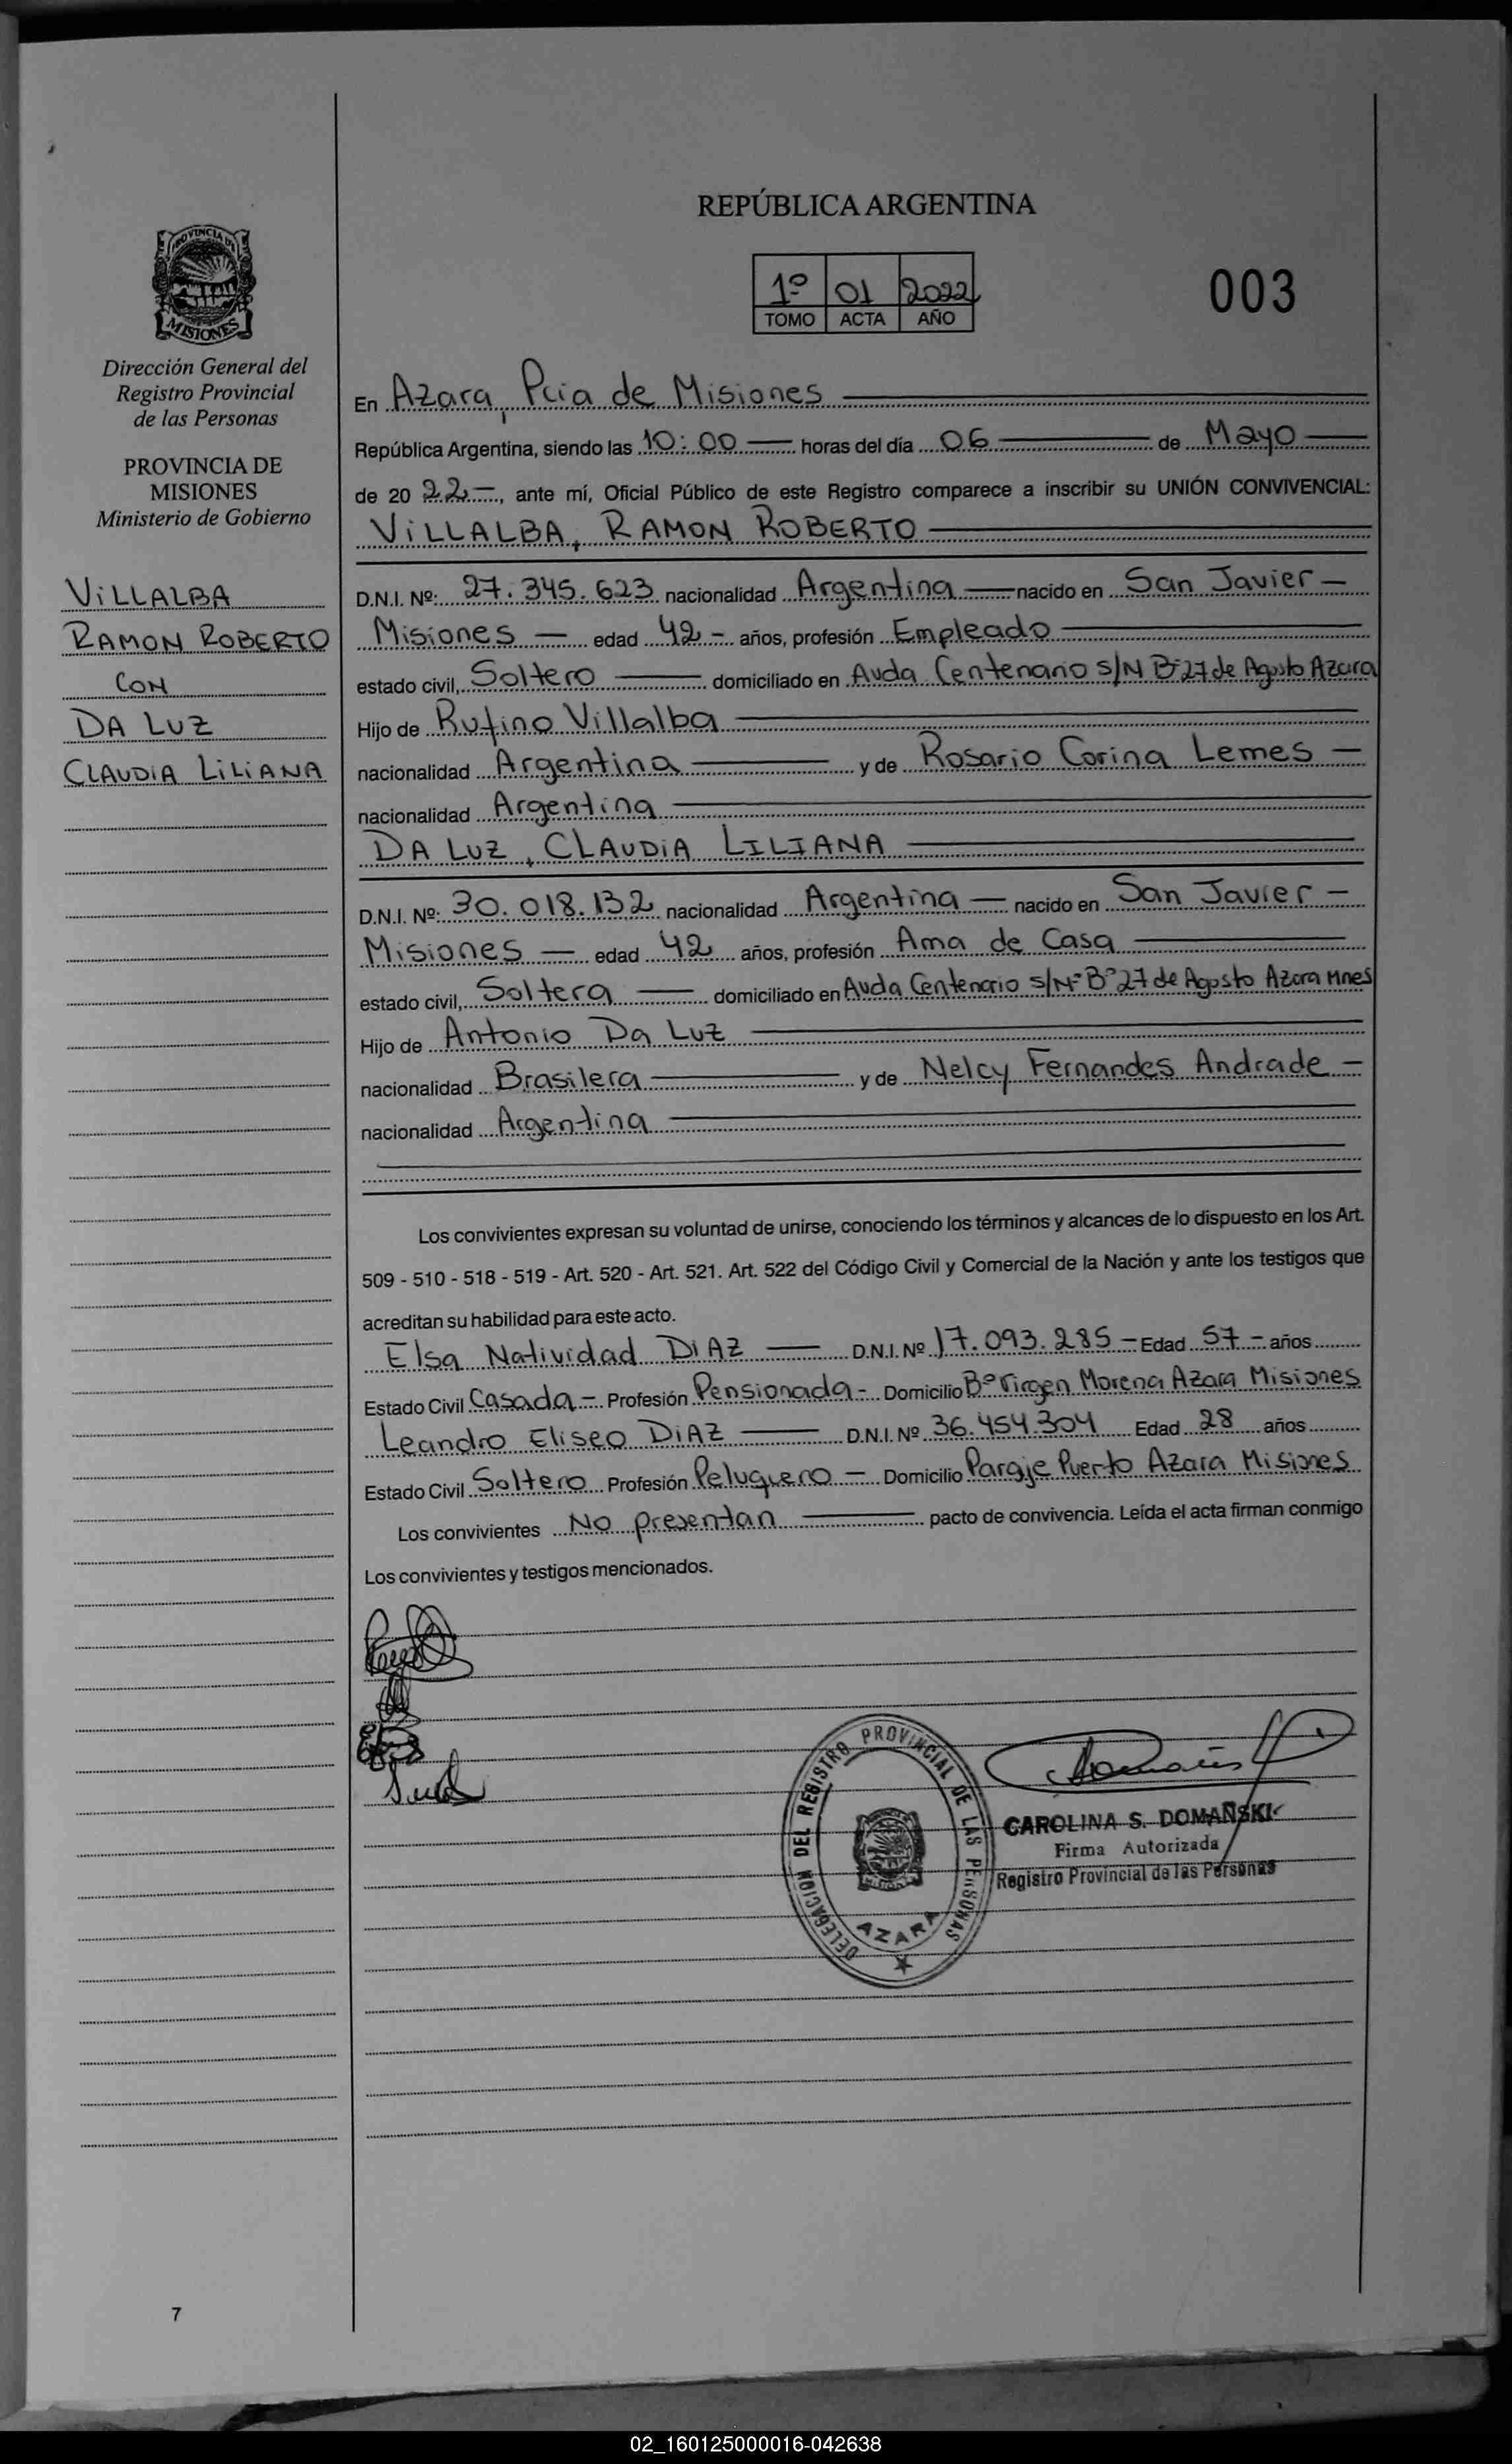 REPÚBLICA ARGENTINA
1º 01 2022
TOMO ACTA AÑO
003
PROVINCIA DE
MISIONES
Dirección General del
Registro Provincial
de las Personas
PROVINCIA DE
MISIONES
Ministerio de Gobierno
VILLALBA
RAMON ROBERTO
CON
DA LUZ
CLAUDIA LILIANA
En Azara, Pcia de Misiones
República Argentina, siendo las 10:00 horas del día 06 de Mayo
de 20 22, ante mí, Oficial Público de este Registro comparece a inscribir su UNIÓN CONVIVENCIAL:
VILLALBA, RAMON ROBERTO
D.N.I. Nº: 27.345.623 nacionalidad Argentina nacido en San Javier
Misiones edad 42 años, profesión Empleado
estado civil, Soltero domiciliado en Avda Centenario S/N Bº 27 de Agosto Azara
Hijo de Rufino Villalba
nacionalidad Argentina y de Rosario Corina Lemes
nacionalidad Argentina
DA LUZ, CLAUDIA LILIANA
D.N.I. Nº: 30.018.132 nacionalidad Argentina nacido en San Javier
Misiones edad 42 años, profesión Ama de Casa
estado civil, Soltera domiciliado en Avda Centenario S/Nº Bº 27 de Agosto Azara Mnes
Hijo de Antonio Da Luz
nacionalidad Brasilera y de Nelcy Fernandes Andrade
nacionalidad Argentina
Los convivientes expresan su voluntad de unirse, conociendo los términos y alcances de lo dispuesto en los Art.
509 - 510 - 518 - 519 - Art. 520 - Art. 521. Art. 522 del Código Civil y Comercial de la Nación y ante los testigos que
acreditan su habilidad para este acto.
Elsa Natividad DIAZ D.N.I. Nº 17.093.285 Edad 57 años
Estado Civil Casada Profesión Pensionada Domicilio Bº Virgen Morena Azara Misiones
Leandro Eliseo DIAZ D.N.I. Nº 36.454.304 Edad 28 años
Estado Civil Soltero Profesión Peluquero Domicilio Paraje Puerto Azara Misiones
Los convivientes No presentan pacto de convivencia. Leída el acta firman conmigo
Los convivientes y testigos mencionados.
DELEGACION DEL REGISTRO PROVINCIAL DE LAS PERSONAS
AZARA
CAROLINA S. DOMAÑSKI
Firma Autorizada
Registro Provincial de las Personas
7
02_160125000016-042638